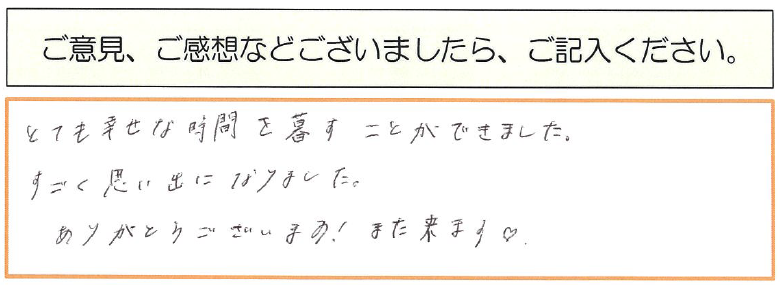 ご意見、ご感想などございましたら、ご記入ください。
とても幸せな時間を暮すことができました。
すごく思い出になりました。
ありがとうございます!また来ます♡.